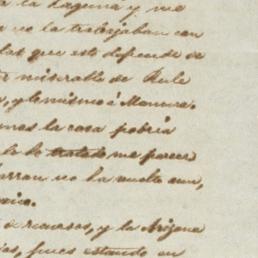 a la Laguna y me
no la trabajaban con
las que esto depende de
miserable de Rule
y lo mismo á Manuera.
la cosa podria
lo tratado me parece
no ha vuelto aun,
xico.
recursos, y la Arizona
pues estando en